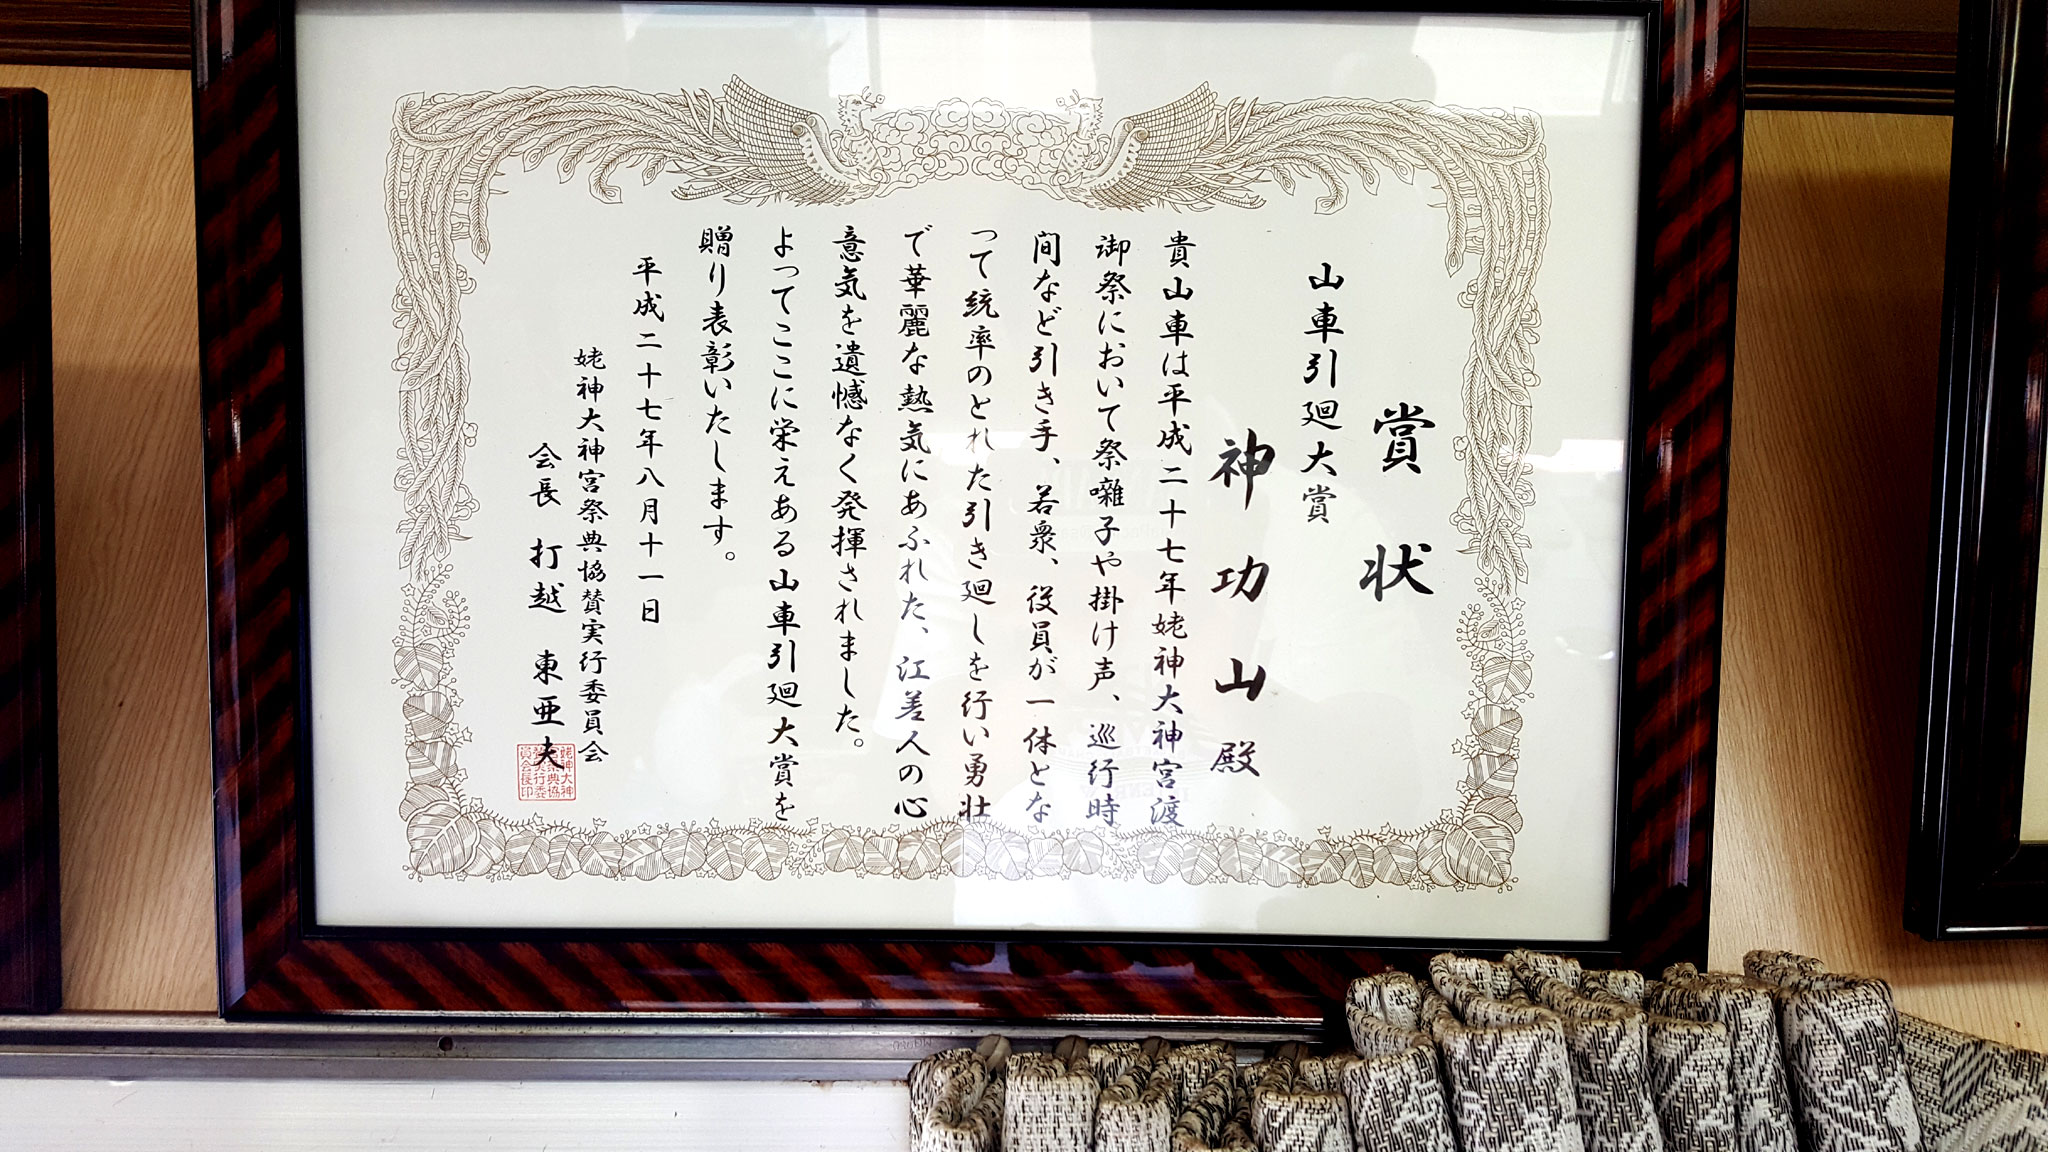 賞状
山車引廻大賞
神功山殿
貴山車は平成二十七年姥神大神宮渡
御祭において祭囃子や掛け声、巡行時
間など引き手、若衆、役員が一体とな
って統率のとれた引き廻しを行い勇壮
で華麗な熱気にあふれた、江差人の心
意気を遺憾なく発揮されました。
よってここに栄えある山車引廻大賞を
贈り表彰いたします。
平成二十七年八月十一日
姥神大神宮祭典協賛実行委員会
会長 打越 東亜夫